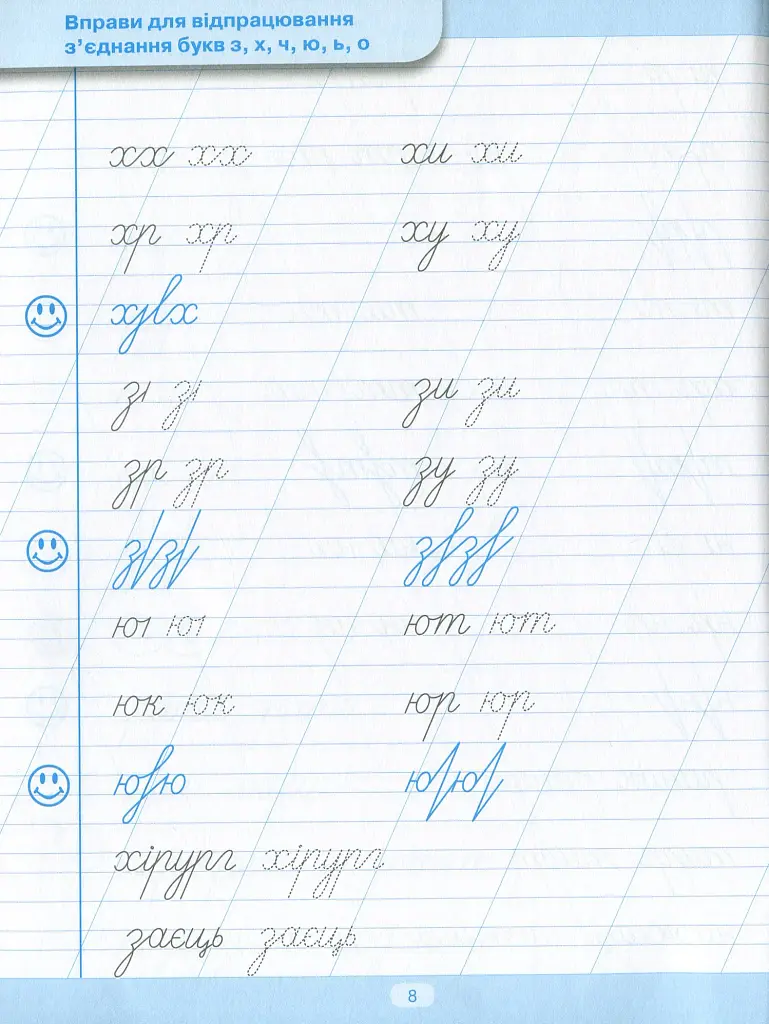 Вправи для відпрацювання
з’єднання букв з, х, ч, ю, ь, о
хх хх хи хи
хр хр ху ху
зı зı зи зи
зр зр зу зу
юı юı ют ют
юк юк юр юр
хірург хірург
заєць заєць
8